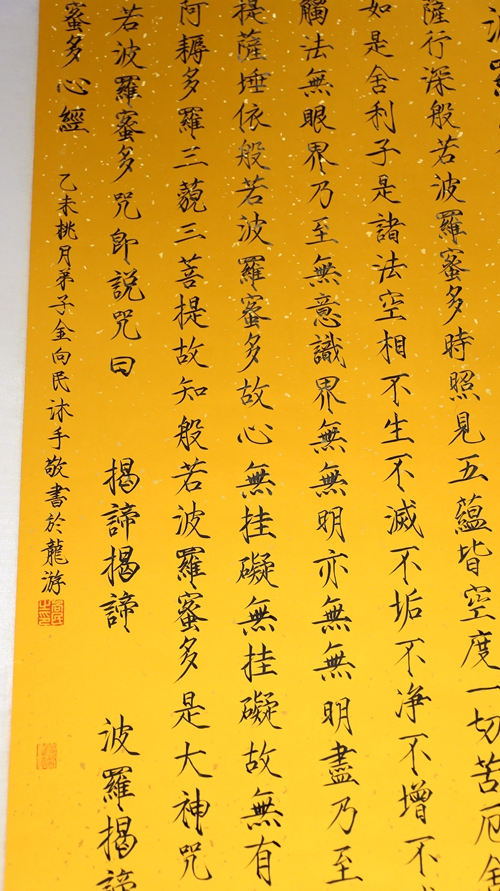 薩行深般若波羅蜜多時照見五蘊皆空度一切苦厄舍
如是舍利子是諸法空相不生不滅不垢不净不增不
觸法無眼界乃至無意識界無無明亦無無明盡乃至
提薩埵依般若波羅蜜多故心無挂礙無挂礙故無有
阿耨多羅三藐三菩提故知般若波羅蜜多是大神咒
若波羅蜜多咒即説咒曰 揭諦揭諦 波羅揭諦
蜜多心經 乙未桃月弟子金向民沐手敬書於龍游